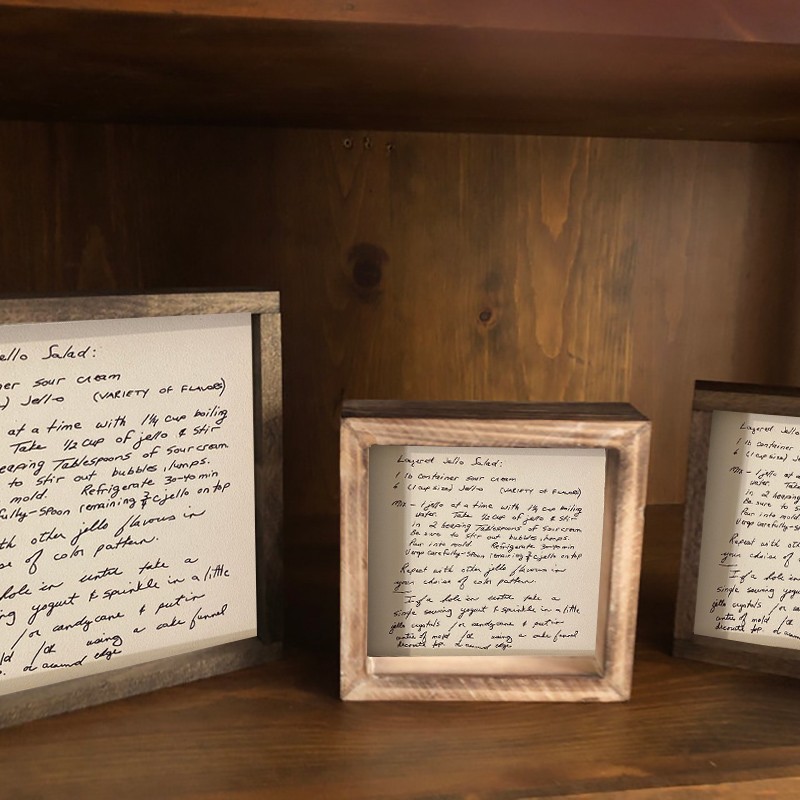 ello Salad:
ner sour cream
) Jell-o (VARIETY OF FLAVORS)
at a time with 1¼ cup boiling
Take ½ cup of jello & stir
eaping Tablespoons of sour cream
to stir out bubbles, lumps.
mold. Refrigerate 30-40 min
fully-Spoon remaining ¾ c jello on top
th other jello flavours in
se of color pattern.
hole in center take a
ing yogurt & sprinkle in a little
/or candy cane & put in
ld /or using a cake funnel
p. or around edge
Layered Jello Salad:
1 lb container sour cream
6 (1 cup size) Jell-o (VARIETY OF FLAVORS)
Mix - 1 jello at a time with 1¼ cup boiling
water. Take ½ cup of jello & stir
in 2 heaping Tablespoons of sour cream
Be sure to stir out bubbles, lumps.
Pour into mold. Refrigerate 30-40 min
Very carefully-Spoon remaining ¾ c jello on top
Repeat with other jello flavours in
your choice of color pattern.
If a hole in center take a
single serving yogurt & sprinkle in a little
jello crystals /or candy cane & put in
centre of mold /or using a cake funnel
decorate top. or around edge
Layered Jello
1 lb container
6 (1 cup size)
Mix - 1 jello at a
water. Take
in 2 heaping
Be sure to
Pour into mold
Very carefully-S
Repeat with oth
your choice of
If a hole in
single serving yogu
jello crystals /or
centre of mold /or
decorate top. or a